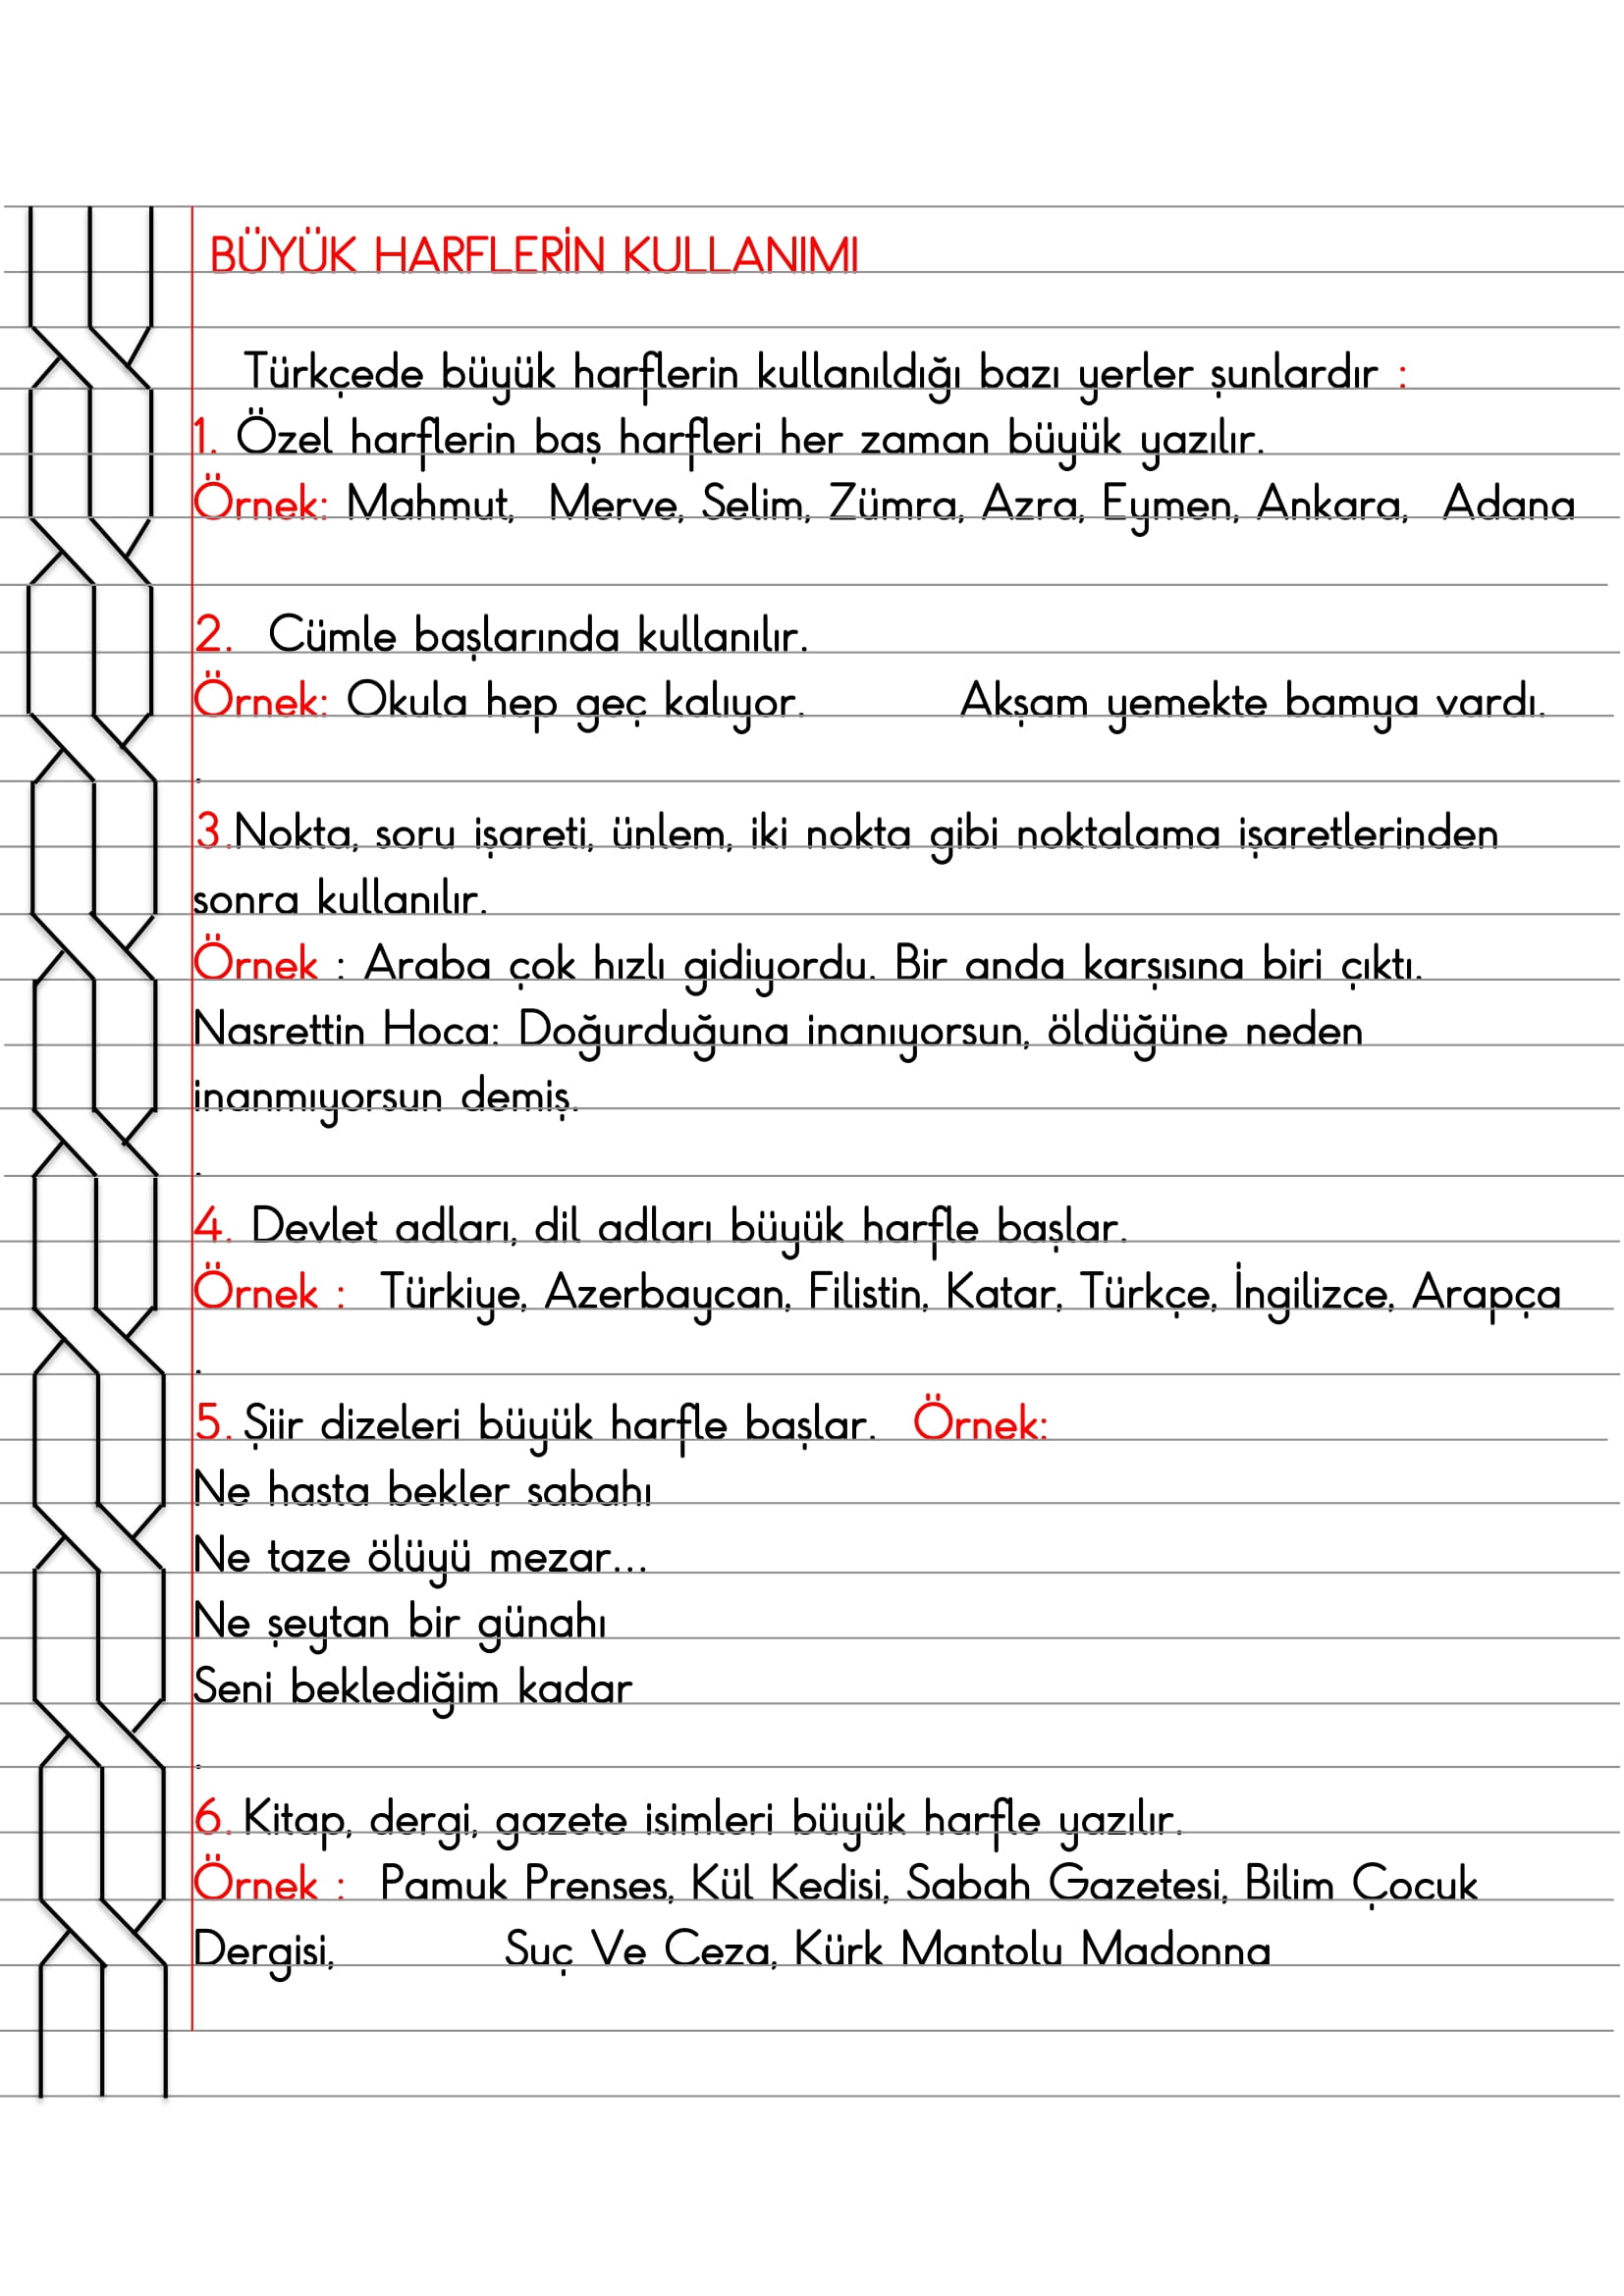 BÜYÜK HARFLERİN KULLANIMI
Türkçede büyük harflerin kullanıldığı bazı yerler şunlardır :
1. Özel harflerin baş harfleri her zaman büyük yazılır.
Örnek: Mahmut, Merve, Selim, Zümra, Azra, Eymen, Ankara, Adana
2. Cümle başlarında kullanılır.
Örnek: Okula hep geç kalıyor. Akşam yemekte bamya vardı.
.
3.Nokta, soru işareti, ünlem, iki nokta gibi noktalama işaretlerinden
sonra kullanılır.
Örnek : Araba çok hızlı gidiyordu. Bir anda karşısına biri çıktı.
Nasrettin Hoca: Doğurduğuna inanıyorsun, öldüğüne neden
inanmıyorsun demiş.
.
4. Devlet adları, dil adları büyük harfle başlar.
Örnek : Türkiye, Azerbaycan, Filistin, Katar, Türkçe, İngilizce, Arapça
.
5. Şiir dizeleri büyük harfle başlar. Örnek:
Ne hasta bekler sabahı
Ne taze ölüyü mezar...
Ne şeytan bir günahı
Seni beklediğim kadar
.
6. Kitap, dergi, gazete isimleri büyük harfle yazılır.
Örnek : Pamuk Prenses, Kül Kedisi, Sabah Gazetesi, Bilim Çocuk
Dergisi, Suç Ve Ceza, Kürk Mantolu Madonna